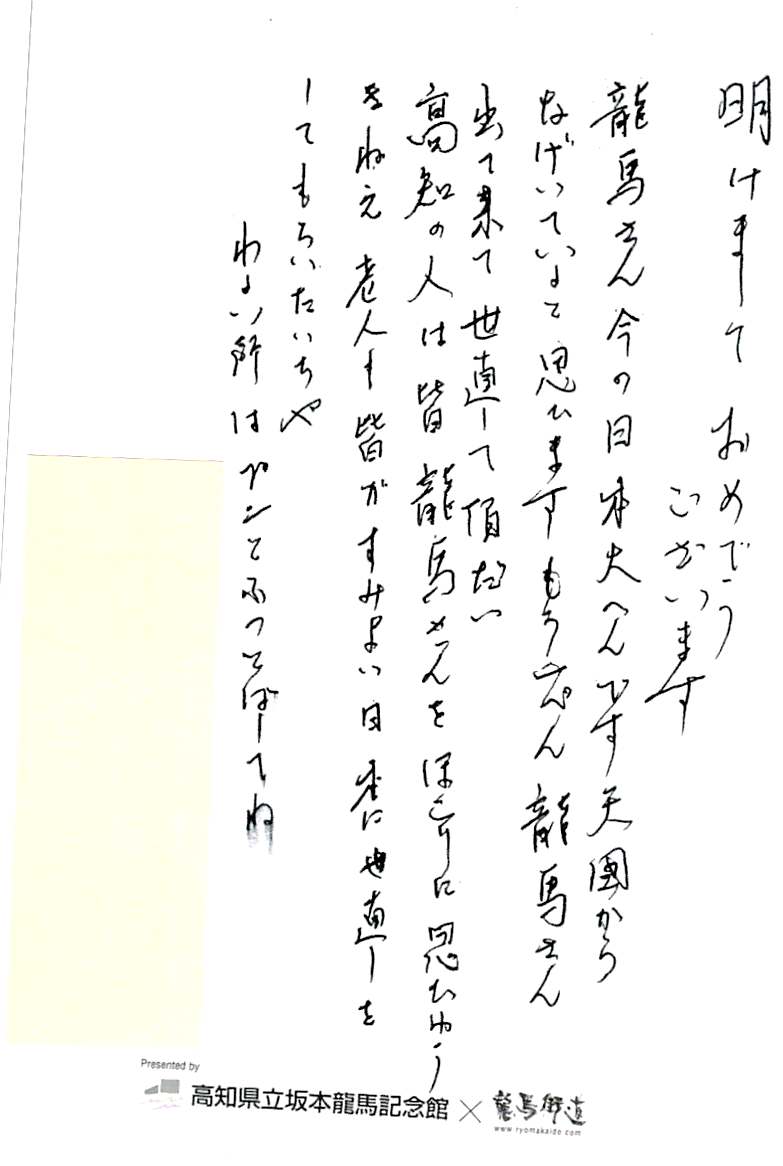 明けまして おめでとう
ございます
龍馬さん今の日本大へんです天国から
なげいていると思ひますもう一ぺん龍馬さん
出て来て世直して頂だい
高知の人は皆龍馬さんをほこりに思ひゆう
きねえ 老人も皆がすみよい日本に世直しを
してもらいたいちや
わるい所は ふっとばしてね
Presented by
高知県立坂本龍馬記念館 × 龍馬街道
www.ryomakaido.com